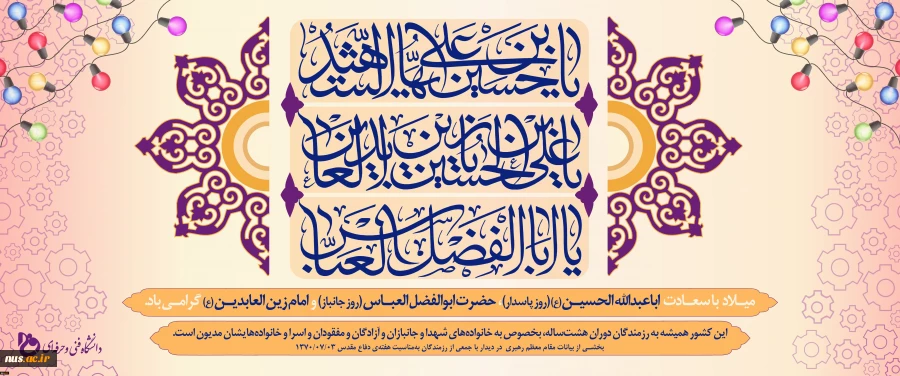 یا حسین بن علی ایها الشهید
یا علی بن الحسین یا زین العابدین
یا اباالفضل العباس
میلاد باسعادت اباعبدالله الحسین(ع)(روز پاسدار) حضرت ابوالفضل العباس(روز جانباز) و امام زین العابدین(ع) گرامی باد.
این کشور همیشه به رزمندگان دوران هشت‌ساله، بخصوص به خانواده‌های شهدا و جانبازان و آزادگان و مفقودان و اسرا و خانواده‌هایشان مدیون است.
بخشی از بیانات مقام معظم رهبری در دیدار با جمعی از رزمندگان به‌مناسبت هفته‌ی دفاع مقدس ۱۳۷۰/۰۷/۰۳
دانشگاه فنی و حرفه‌ای
nus.ac.ir